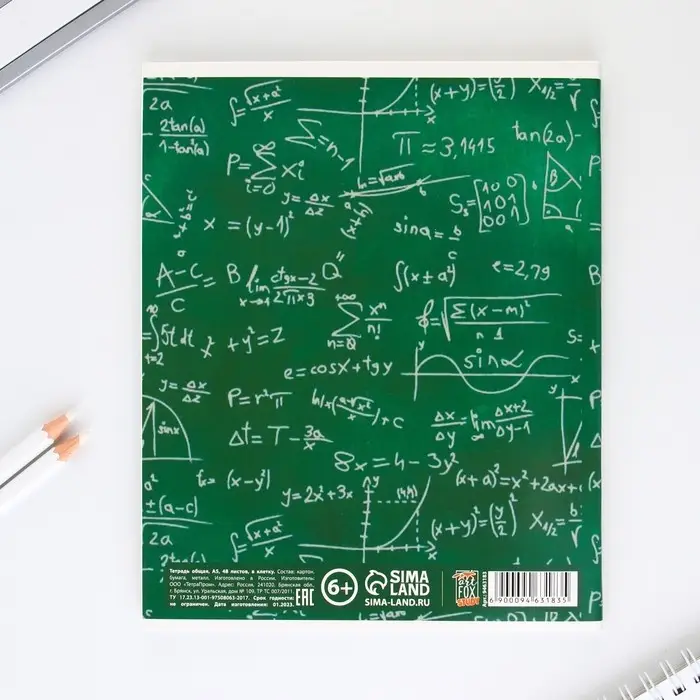 2a
2tan(a)
1-tan²(a)
√x+a²
x
Σ=n-1
(x+y)=(y/2)
X₁/₂=
π ≈ 3,1415
tan(2a)-
P=Σxi
i=0
y=Δx/Δz
S₃=[1 0 0
1 0 1
0 0 1]
B
a
x = (y-1)²
(x+h)
sina=b/c
A-C/C = B
lim ctgx-2/2πx3
x→1
Q"
∫(x±a²)
e=2,79
∫5t dt
t=2
x + y²=Z
+∞
Σ xⁿ/n!
n=0
√Σ(x-m)²
n 1
S=
e=cosx+tgy
y
sinα
x
y=Δx/Δz
sinx
P=r²π
+c
Δx/Δy=lim Δx+2/Δy-1
∞
Δt=T-3a/x
8x=4-3y²
a²
±(a-c)
fx= (x-y²)
y=2x²+3x
y
(4,4)
(x+a)²=x²+2ax+
(x+y)²=(y/2)²
X₁/₂=b
√x+a²
x
2a
2tan(a)
Тетрадь общая, А5, 48 листов, в клетку. Состав: картон,
бумага, металл. Изготовлено в России. Изготовитель:
ООО «ТетраПром». Адрес: Россия, 241020, Брянская обл.,
г. Брянск, ул. Уральская, дом № 109. ТР ТС 007/2011.
ТУ 17.23.13-001-97508063-2017. Срок годности:
не ограничен. Дата изготовления: 01.2023.
EAC
6+
SIMA
LAND
SIMA-LAND.RU
FOX
STUDY
Арт: 9463183
6 900094 631835